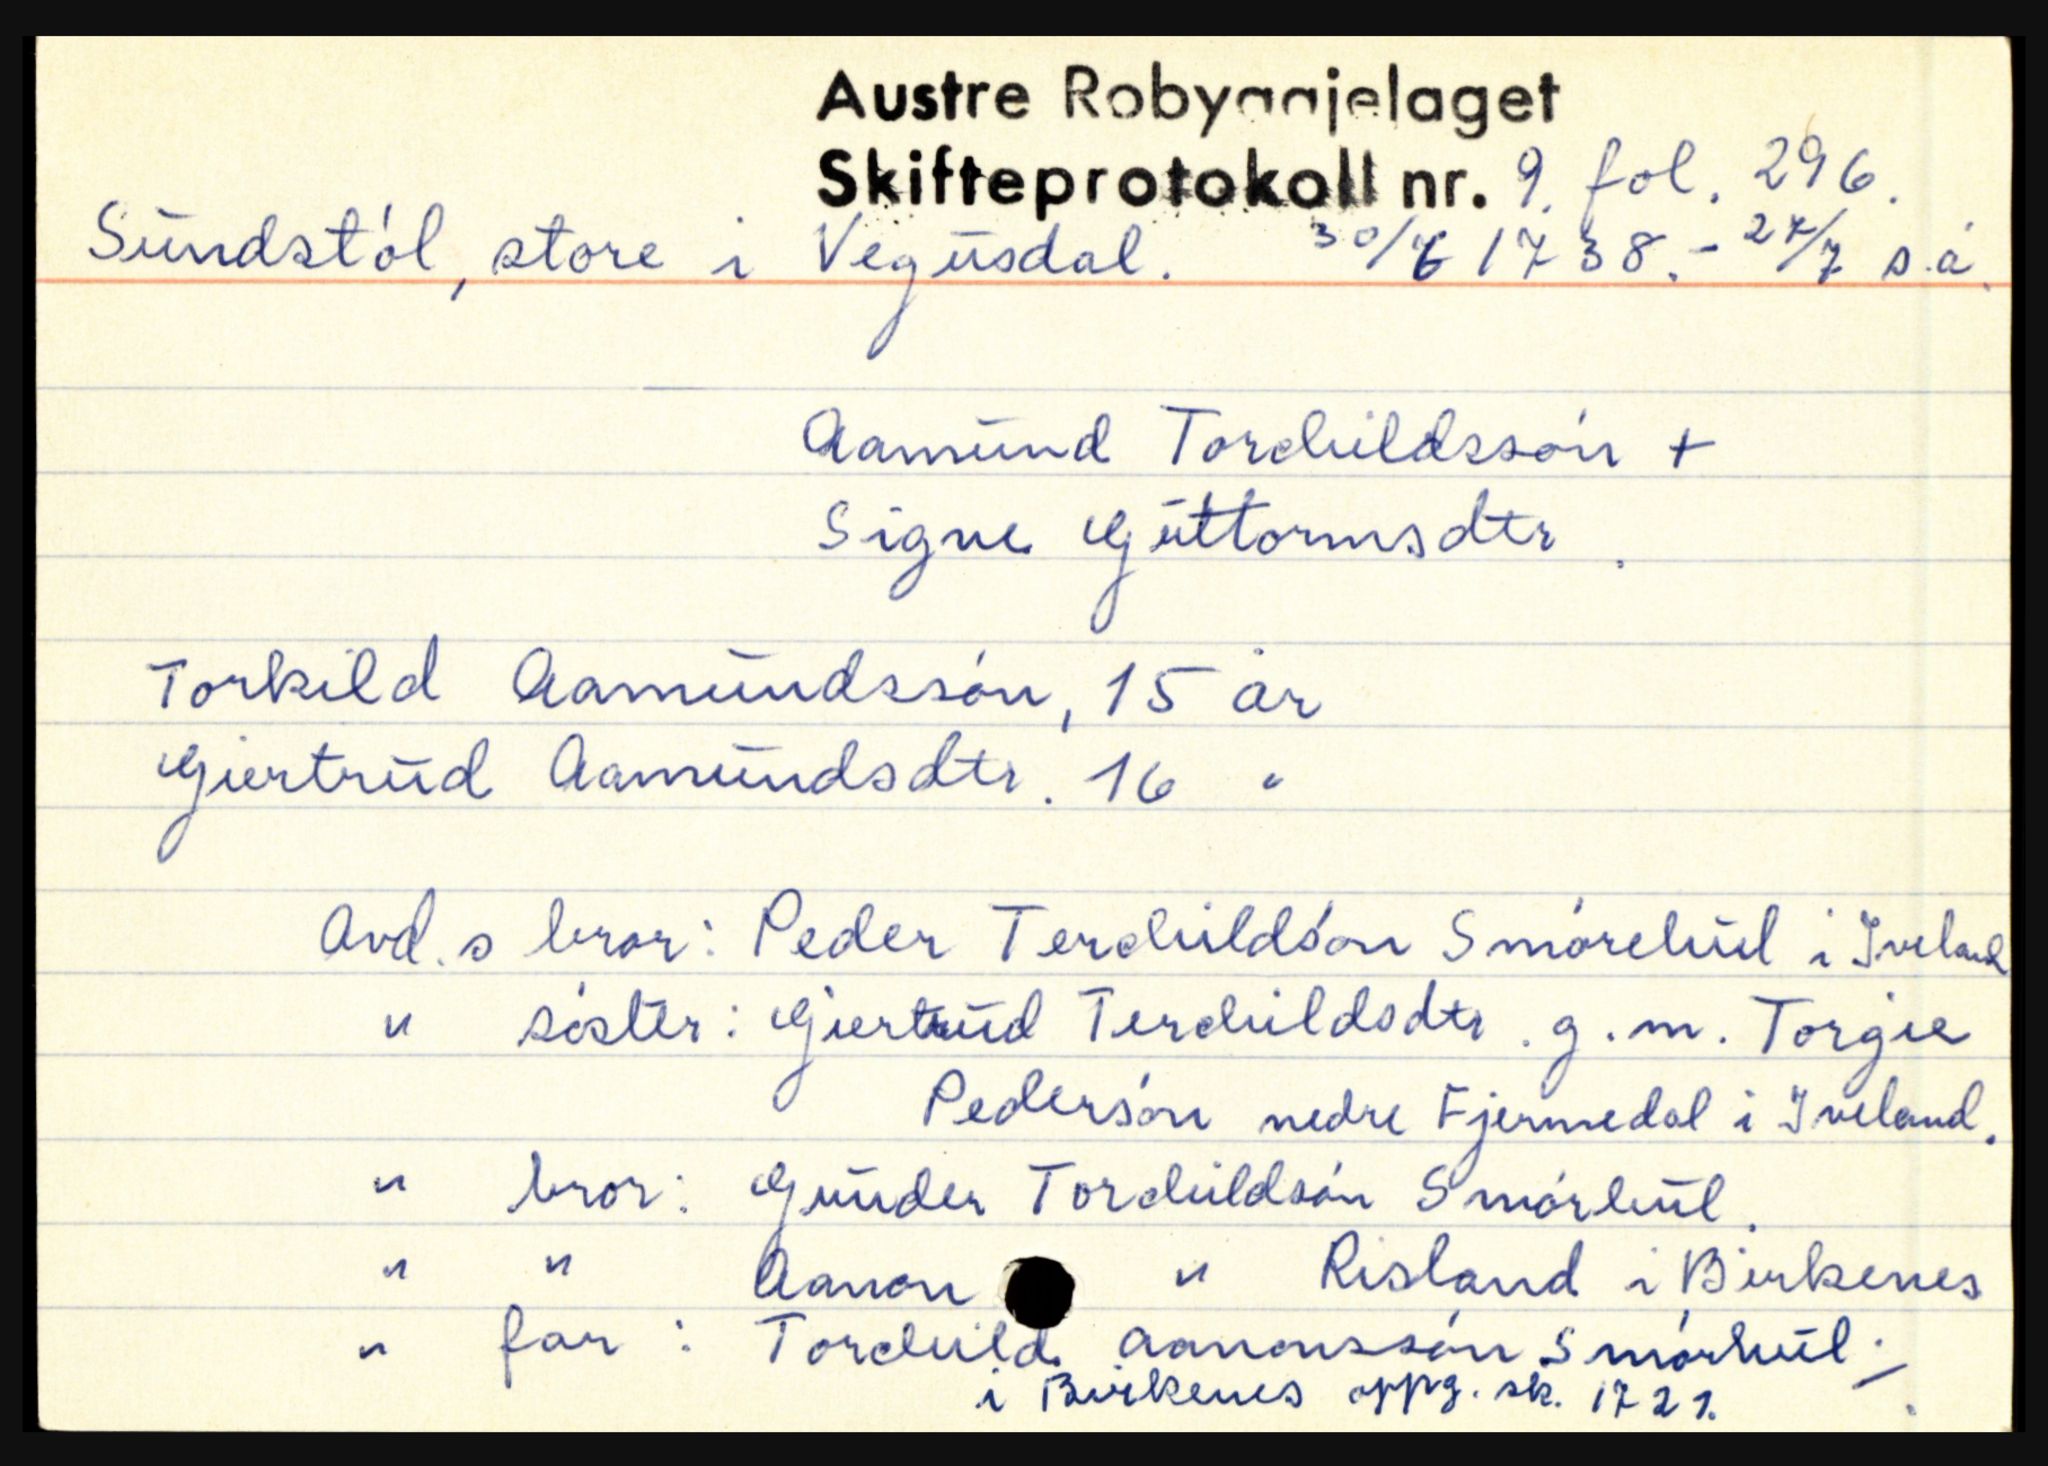 Austre Robyggjelaget
Skifteprotokoll nr. 9. fol. 296.
Sundstöl, store i Vegusdal. 30/6 1738. - 24/7 s.å.
Aamund Torchildssön +
Signe Guttormsdtr.
Torkild Aamundssön, 15 år
Giertrud Aamundsdtr. 16 "
Avd. s bror: Peder Terchildsön Smörehul i Iveland
" söster: Giertrud Terchildsdtr. g. m. Torgie
Pedersön nedre Fjermedal i Iveland.
" bror: Gunder Torchildsön Smörhul.
" " Aanon " Risland i Birkenes
" far: Torchild Aanonssön Smörhul
i Birkenes oppg. sk. 1721.